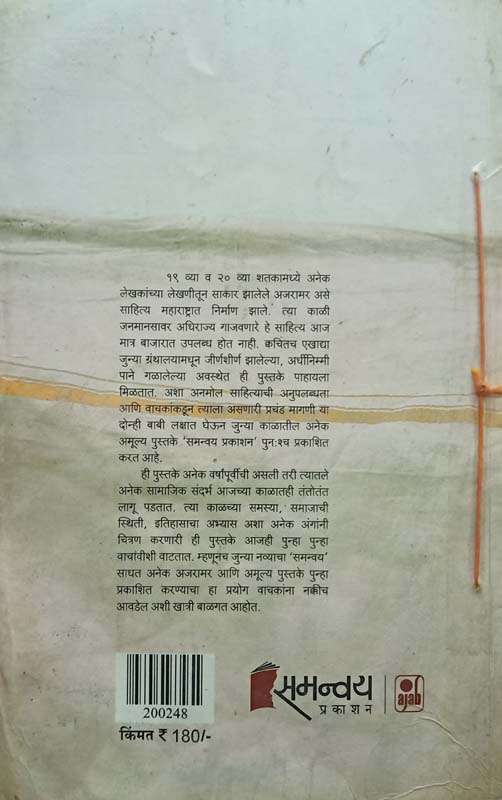 १९ व्या व २० व्या शतकामध्ये अनेक
लेखकांच्या लेखणीतून साकार झालेले अजरामर असे
साहित्य महाराष्ट्रात निर्माण झाले. त्या काळी
जनमानसावर अधिराज्य गाजवणारे हे साहित्य आज
मात्र बाजारात उपलब्ध होत नाही. क्वचितच एखाद्या
जुन्या ग्रंथालयामधून जीर्णशीर्ण झालेल्या, अर्धीनिम्मी
पाने गळालेल्या अवस्थेत ही पुस्तके पाहायला
मिळतात. अशा अनमोल साहित्याची अनुपलब्धता
आणि वाचकांकडून त्याला असणारी प्रचंड मागणी या
दोन्ही बाबी लक्षात घेऊन जुन्या काळातील अनेक
अमूल्य पुस्तके ‘समन्वय प्रकाशन’ पुन:श्च प्रकाशित
करत आहे.
ही पुस्तके अनेक वर्षांपूर्वीची असली तरी त्यातले
अनेक सामाजिक संदर्भ आजच्या काळातही तंतोतंत
लागू पडतात. त्या काळच्या समस्या, समाजाची
स्थिती, इतिहासाचा अभ्यास अशा अनेक अंगांनी
चित्रण करणारी ही पुस्तके आजही पुन्हा पुन्हा
वाचावीशी वाटतात. म्हणूनच जुन्या नव्याचा ‘समन्वय’
साधत अनेक अजरामर आणि अमूल्य पुस्तके पुन्हा
प्रकाशित करण्याचा हा प्रयोग वाचकांना नक्कीच
आवडेल अशी खात्री बाळगत आहोत.
200248
किंमत ₹ 180/-
समन्वय
प्रकाशन
ajab